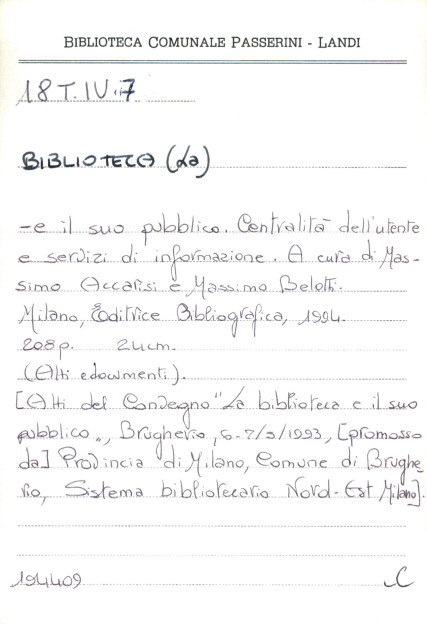 BIBLIOTECA COMUNALE PASSERINI - LANDI
18 T. IV. 7
BIBLIOTECA (La)
- e il suo pubblico. Centralità dell'utente
e servizi di informazione. A cura di Mas-
simo Accarisi e Massimo Belotti.
Milano, Editrice Bibliografica, 1994.
208 p. 24 cm.
(Atti e documenti).
[Atti del Convegno "La biblioteca e il suo
pubblico", Brugherio, 6-7/5/1993, [promosso
da] Provincia di Milano, Comune di Brughe
rio, Sistema bibliotecario Nord-Est Milano].
194409
C